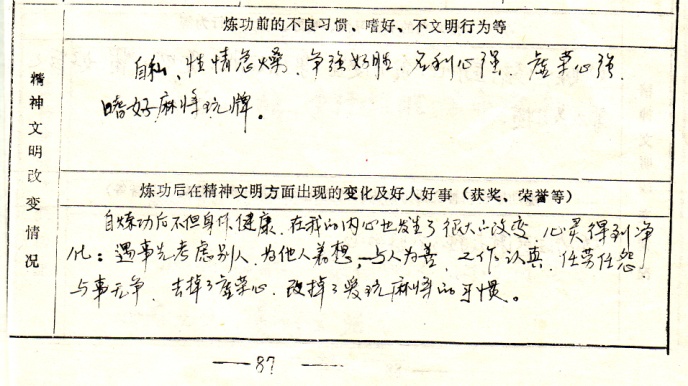 炼功前的不良习惯、嗜好、不文明行为等
自私、性情急燥、争强好胜、名利心强、虚荣心强、
嗜好麻将玩牌。
精神文明改变情况
炼功后在精神文明方面出现的变化及好人好事（获奖、荣誉等）
自炼功后不但身体健康，在我的内心也发生了很大的改变，心灵得到净
化：遇事先考虑别人，为他人着想，与人为善，工作认真，任劳任怨
与事无争，去掉了虚荣心，改掉了爱玩麻将的习惯。
— 87 —